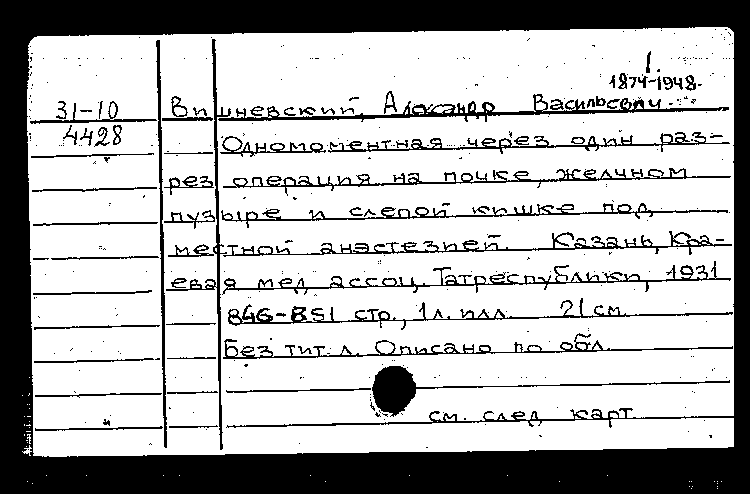 1.
1874-1948.
31-10 Вишневский, Александр Васильевич.
4428 Одномоментная через один раз-
рез операция на почке, желчном
пузыре и слепой кишке под
местной анэстезией. Казань, Кра-
евая мед. ассоц. Татреспублики, 1931
846-851 стр., 1 л. илл. 21 см.
Без тит. л. Описано по обл.
см. след. карт.